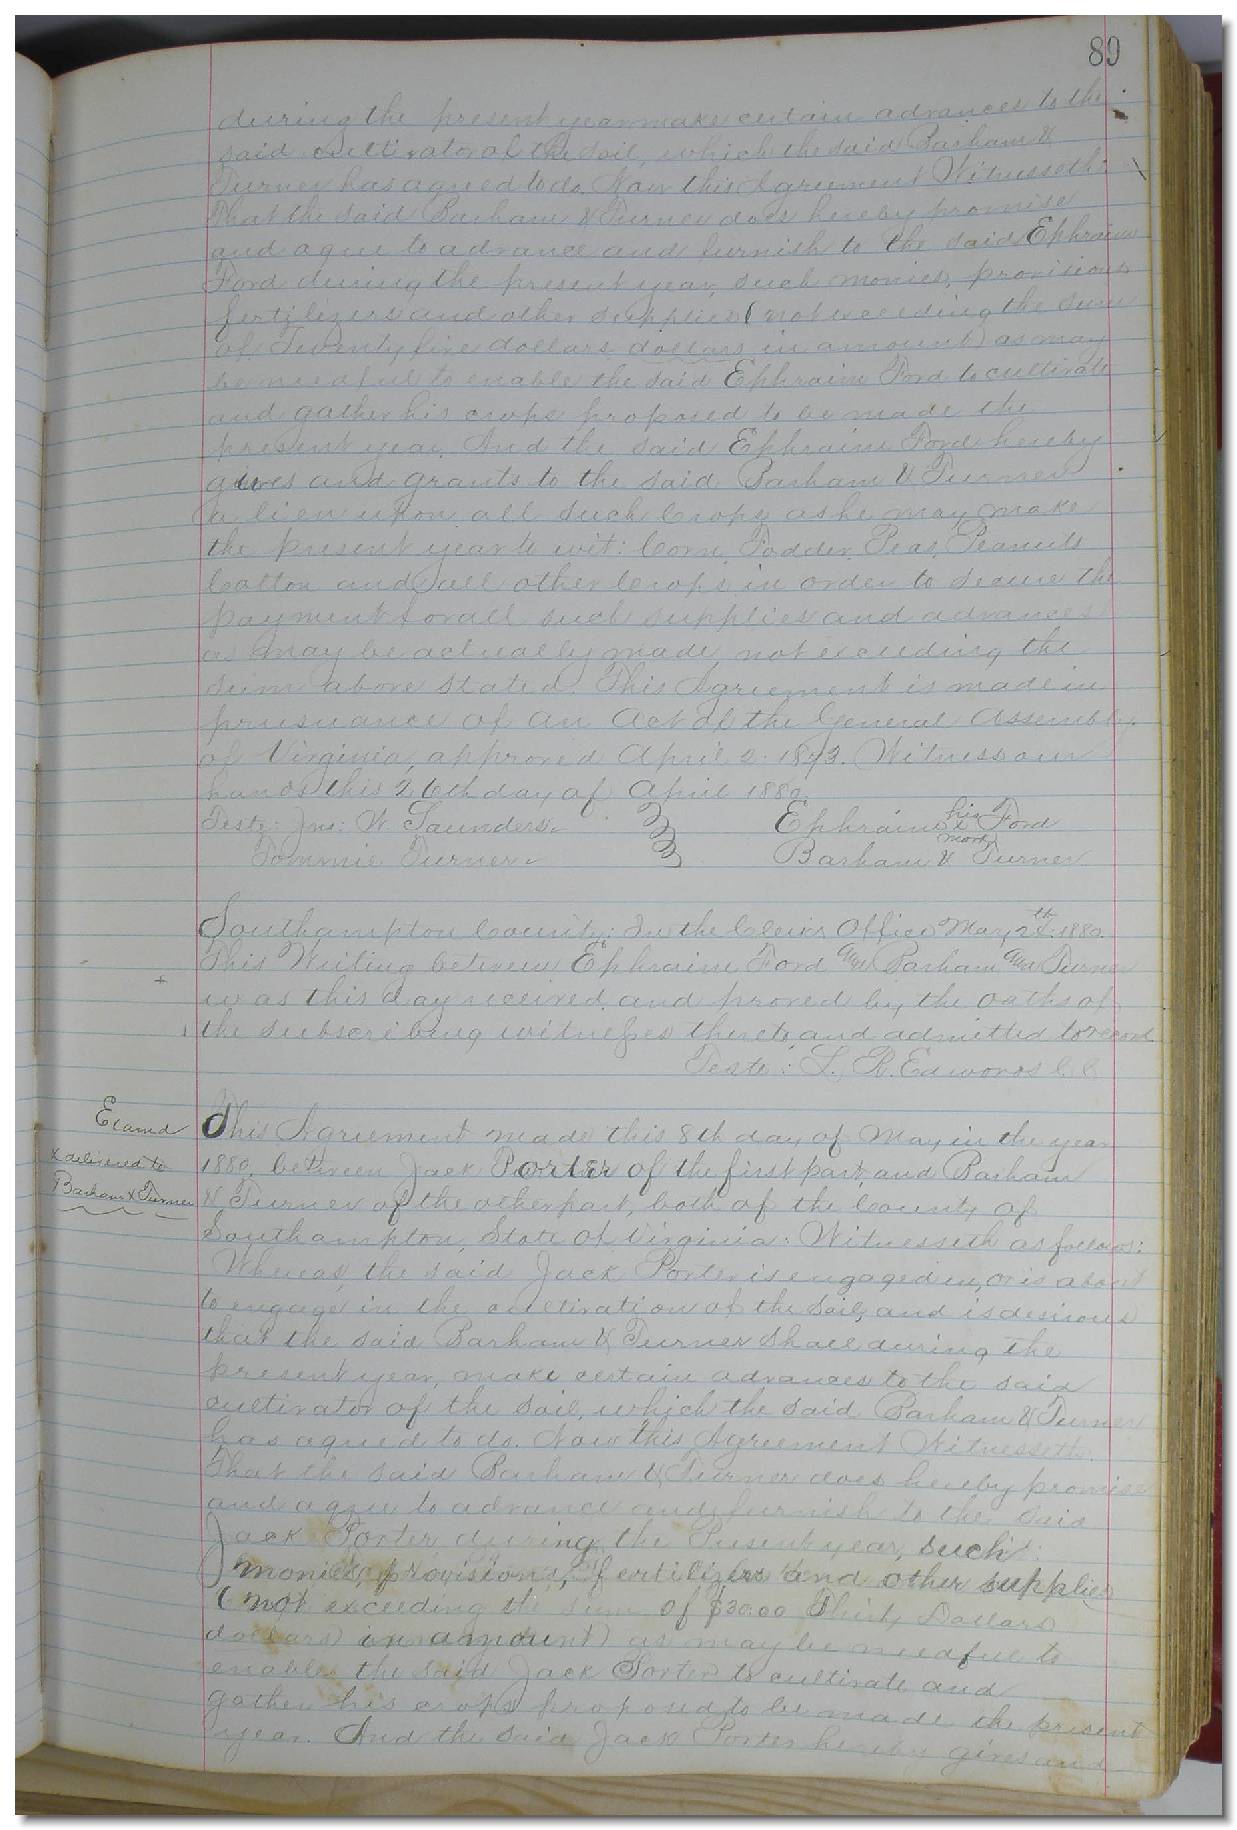 89
during the present year make certain advances to the
said cultivator of the soil, which the said Barham &
Turner has agreed to do. Now this Agreement Witnesseth:
That the said Barham & Turner does hereby promise
and agree to advance and furnish to the said Ephraim
Ford during the present year, such monies, provisions
fertilizers and other supplies (not exceeding the sum
of Twenty five dollars dollars in amount) as may
be needful to enable the said Ephraim Ford to cultivate
and gather his crops proposed to be made the
present year. And the said Ephraim Ford hereby
gives and grants to the said Barham & Turner
a lien upon all such Crops as he may make
the present year to wit: Corn, Fodder, Peas, Peanuts
Cotton and all other Crops in order to secure the
payment for all such supplies and advances
as may be actually made, not exceeding the
sum above stated. This Agreement is made in
prusuance of an Act of the General Assembly
of Virginia, approved April 2. 1873. Witness our
hands this 26th day of April 1880.
Teste: Jno: W. Saunders. Ephraim his x mark Ford
Tommie Turner. Barham & Turner
Southampton County: In the Clerks Office May 2th 1880.
This Writing between Ephraim Ford and Barham and Turner
was this day received and proved by the oaths of
the subscribing witnesses thereto and admitted to record
Teste: L. R. Edwards C. C
Examd
& delivered to
Barham & Turner
This Agreement made this 8th day of May, in the year
1880, between Jack Porter of the first part, and Barham
& Turner of the other part, both of the County of
Southampton, State of Virginia: Witnesseth as follows:
Whereas, the said Jack Porter is engaged in, or is about
to engage in the cultivation of the soil, and is desirous
that the said Barham & Turner shall during the
present year, make certain advances to the said
cultivator of the soil, which the said Barham & Turner
has agreed to do. Now this Agreement Witnesseth:
That the said Barham & Turner does hereby promise
and agree to advance and furnish to the said
Jack Porter during the Present year, such
monies, provisions, fertilizers and other supplies
(not exceeding the sum of $30.00 Thirty Dollars
dollars) in amount) as may be needful to
enable the said Jack Porter to cultivate and
gather his crops proposed to be made the present
year. And the said Jack Porter hereby gives and